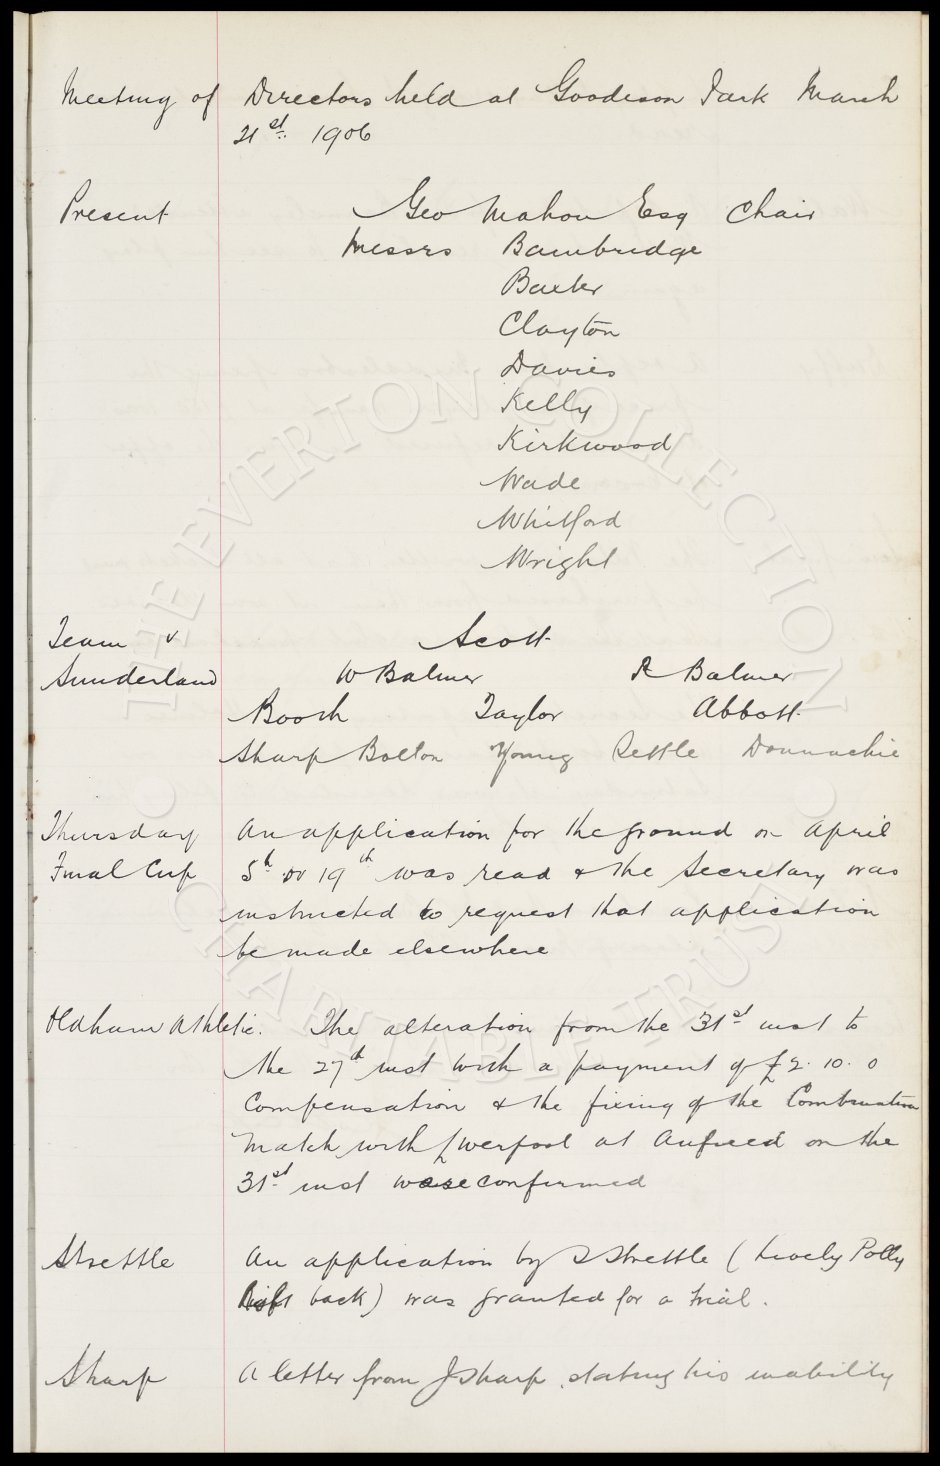 Meeting of Directors held at Goodison Park March
21st 1906
Present Geo Mahon Esq Chair
Messrs Bainbridge
Baxter
Clayton
Davies
Kelly
Kirkwood
Wade
Whitford
Wright
Team v Scott
Sunderland W Balmer R Balmer
Booth Taylor Abbott
Sharp Bolton Young Settle Donnachie
Thursday An application for the ground on April
Final Cup 5th or 19th was read & the Secretary was
instructed to request that application
be made elsewhere
Oldham Athletic. The alteration from the 31st inst to
the 27th inst with a payment of £2.10.0
Compensation & the fixing of the Combination
Match with Liverpool at Anfield on the
31st inst were confirmed
Strettle An application by S Strettle (Lively Polly
back) was granted for a trial.
Sharp A letter from J Sharp stating his inability
THE EVERTON COLLECTION
CHARITABLE TRUST